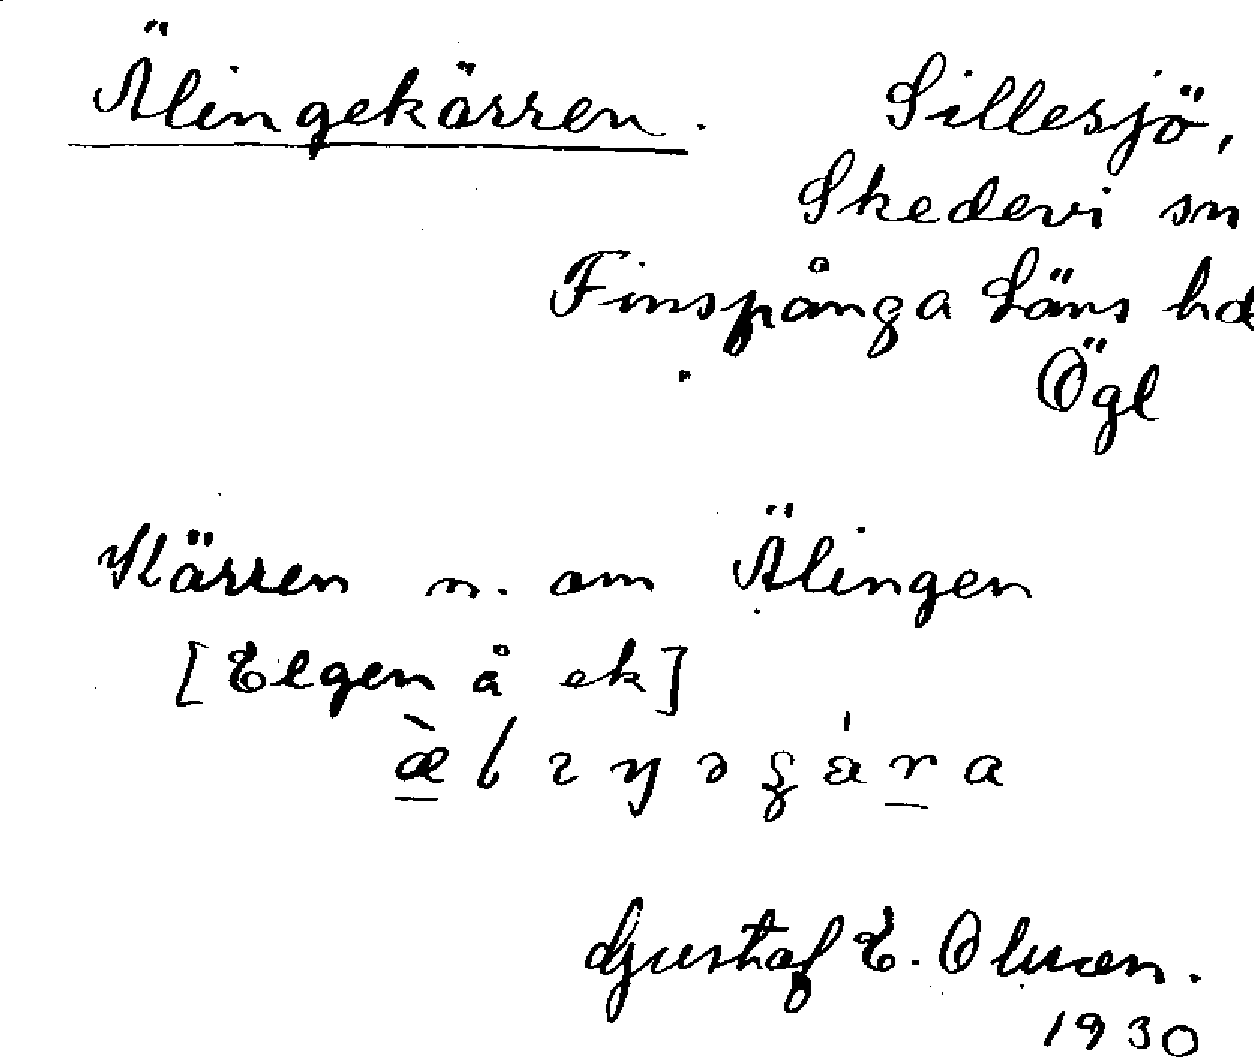 Älingekärren. Sillesjö,
Skedevi sn
Finspånga Läns hd
Ögl
Kärren n. om Älingen
[Elgen å ek]
æ̠̀lɩŋəʂá̈r̠a
Gustaf E. Olsson.
1930